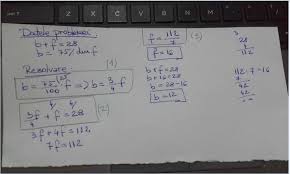 Datele problemei
b + f = 28
b = 75% din f
Rezolvare (1)
b = 75/100 f => b = 3/4 f
3/4 f + f = 28 (2)
3f + 4f = 112
7f = 112
f = 112/7 (3)
f = 16
b + f = 28
b + 16 = 28
b = 28 - 16
b = 12
28
112
112 : 7 = 16
7
42
42